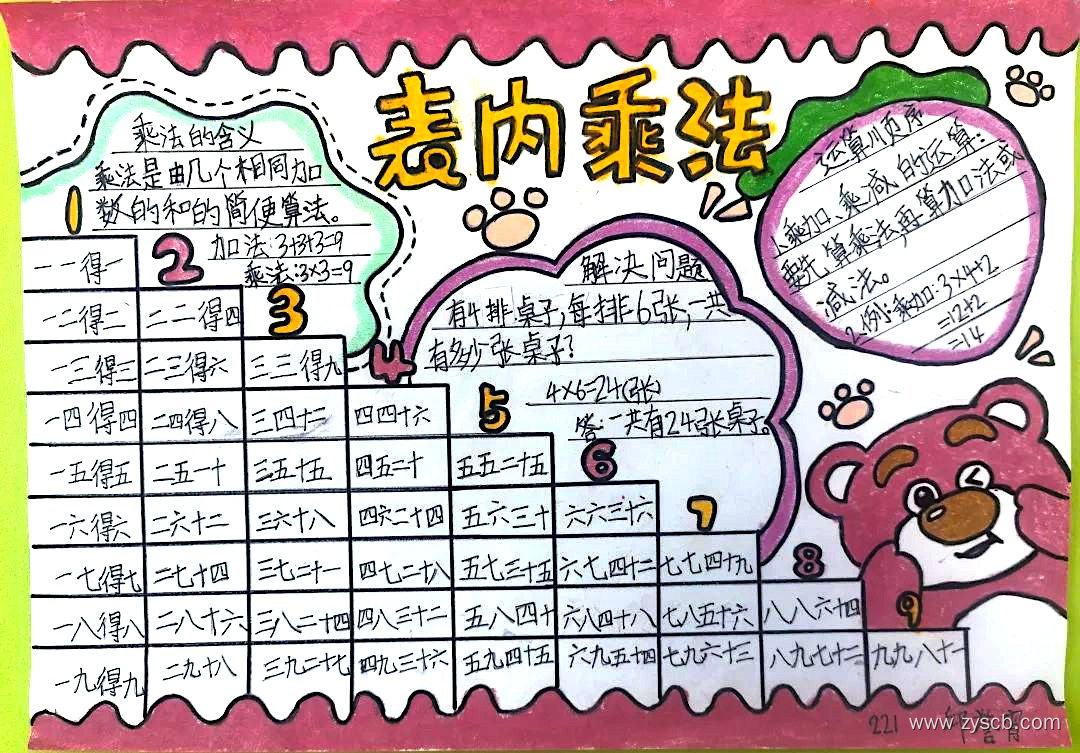 表内乘法
乘法的含义
乘法是由几个相同加
数的和的简便算法。
加法:3+3+3=9
乘法:3×3=9
运算顺序
1、乘加、乘减的运算:
要先算乘法,再算加法或
减法。
2、例:乘加:3×4+2
=12+2
=14
解决问题
有4排桌子,每排6张,一共
有多少张桌子?
4×6=24(张)
答:一共有24张桌子。
1
2
3
4
5
6
7
8
9
一一得一
一二得二 二二得四
一三得三 二三得六 三三得九
一四得四 二四得八 三四十二 四四十六
一五得五 二五一十 三五十五 四五二十 五五二十五
一六得六 二六十二 三六十八 四六二十四 五六三十 六六三十六
一七得七 二七十四 三七二十一 四七二十八 五七三十五 六七四十二 七七四十九
一八得八 二八十六 三八二十四 四八三十二 五八四十 六八四十八 七八五十六 八八六十四
一九得九 二九十八 三九二十七 四九三十六 五九四十五 六九五十四 七九六十三 八九七十二 九九八十一
221
www.zyscb.com